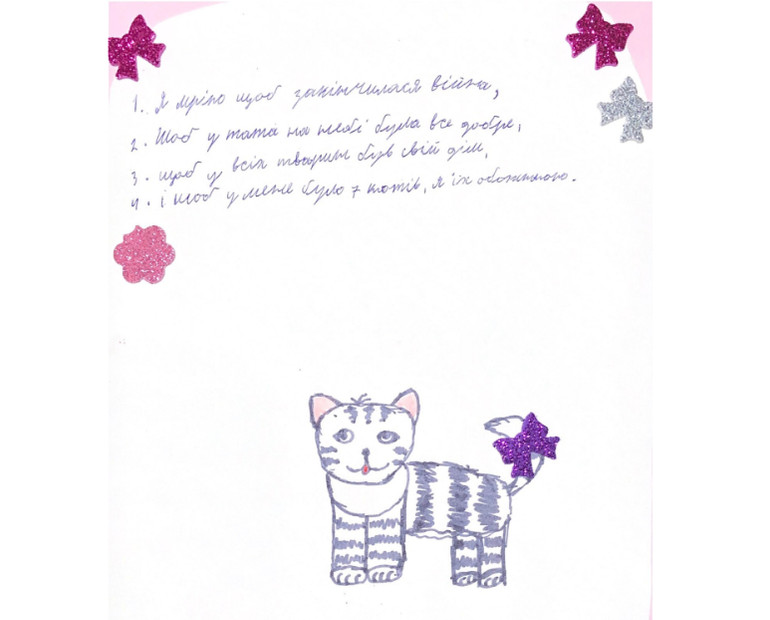 1. Я мрію щоб закінчилася війна,
2. Щоб у тата на небі було все добре,
3. щоб у всіх тварин був свій дім,
4. і щоб у мене було 7 котів, я їх обожнюю.